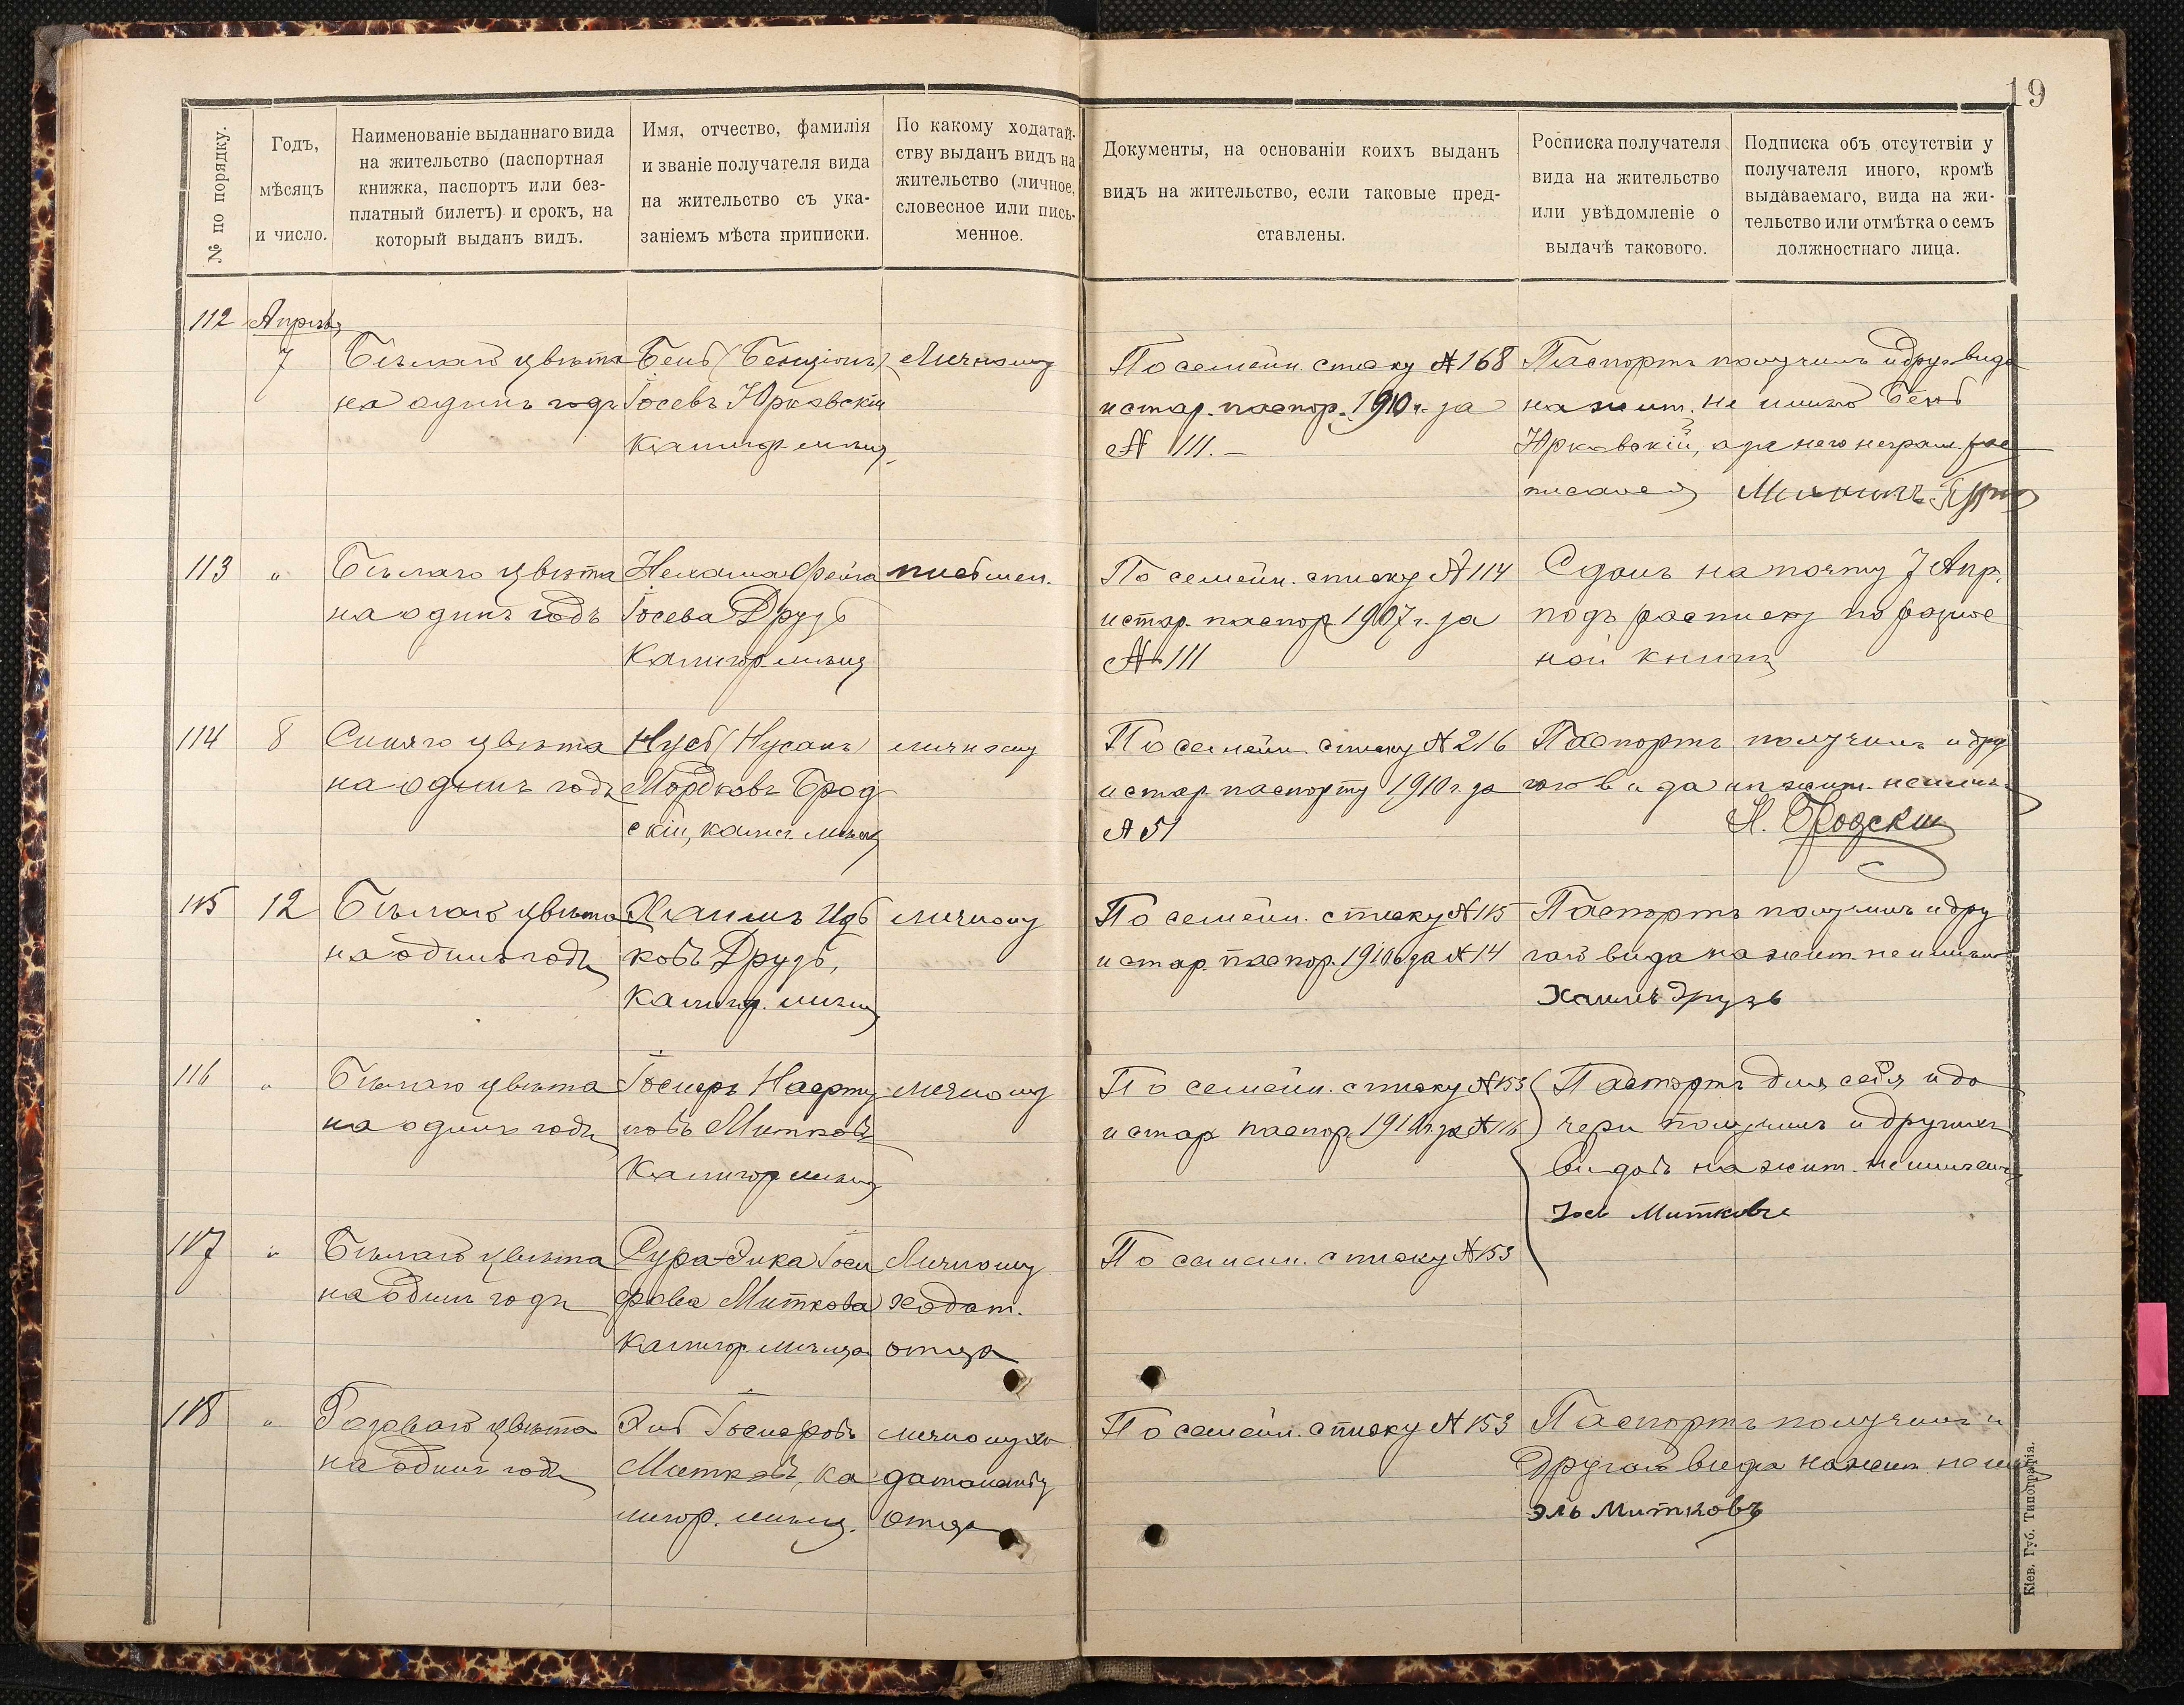 19
№ по порядку.
Годъ,
мѣсяцъ
и число.
Наименованіе выданнаго вида
на жительство (паспортная
книжка, паспортъ или без-
платный билетъ) и срокъ, на
который выданъ видъ.
Имя, отчество, фамилія
и званіе получателя вида
на жительство съ ука-
заніемъ мѣста приписки.
По какому ходатай-
ству выданъ видъ на
жительство (личное,
словесное или пись-
менное.
Документы, на основаніи коихъ выданъ
видъ на жительство, если таковые пред-
ставлены.
Росписка получателя
вида на жительство
или увѣдомленіе о
выдачѣ такового.
Подписка объ отсутствіи у
получателя иного, кромѣ
выдаваемаго, вида на жи-
тельство или отмѣтка о семъ
должностнаго лица.
112
Апрѣль
7
Бѣлаго цвѣта
на одинъ годъ
Бень (Бенціонъ)
Іосевъ Юрковскій
Калигор. мѣщ.
Личному
По семейн. списку № 168
и стар. паспор. 1910 г. за
№ 111.
Паспортъ получилъ и друг. вида
на жит. не имѣю Бень
Юрковскій, а за него неграм. рос
писался
113
"
Бѣлаго цвѣта
на одинъ годъ
Нехама-Фейга
Іосева Друзь
Калигор. мѣщ.
письмен.
По семейн. списку № 114
и стар. паспор. 1907 г. за
№ 111
Сданъ на почту 7 Апр.
подъ расписку по разнос
ной книгѣ
114
8
Синяго цвѣта
на одинъ годъ
Нусь (Нусанъ)
Мордковъ Брод
скій, калиг. мѣщ.
личному
По семейн. списку № 216
и стар. паспорту 1910 г. за
№ 51
Паспортъ получилъ и дру
гого вида на жит. не имѣю
Н. Бродскій
115
12
Бѣлаго цвѣта
на одинъ годъ
Хаимъ Иць
ковъ Друзь,
Калигор. мѣщ.
личному
По семейн. списку № 115
и стар. паспор. 1910 г. за № 14
Паспортъ получилъ и дру
гого вида на жит. не имѣю
Хаимъ Друзь
116
"
Бѣлаго цвѣта
на одинъ годъ
Іосиеръ
Митковъ
Калигор. мѣщ.
личному
По семейн. списку № 153
и стар. паспор. 1910 г. за № 116
Паспортъ для себя и до
чери получилъ и другихъ
видовъ на жит. не имѣемъ
Іось Митковъ
117
"
Бѣлаго цвѣта
на одинъ годъ
Сура-Эика Іоси
фова Миткова
Калигор. мѣщка
Личному
ходат.
отца
По семейн. списку № 153
118
"
Розоваго цвѣта
на одинъ годъ
Эль Іосиеровъ
Митковъ, ка
лигор. мѣщ.
личному хо
датайству
отца
По семейн. списку № 153
Паспортъ получилъ и
другого вида на жит. не имѣю
Эль Митковъ
Кіев. Губ. Типографія.